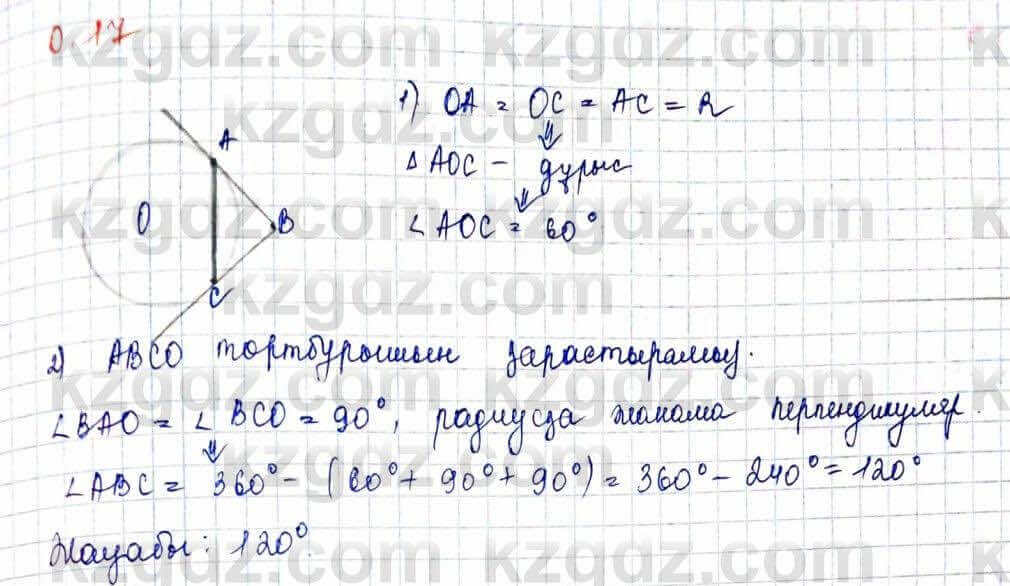 0.17
1) OA = OC = AC = R
Δ AOC - дұрыс
∠ AOC = 60°
A
O
B
C
2) ABCO төртбұрышын қарастырамыз.
∠BAO = ∠BCO = 90°, радиусқа жанама перпендикуляр.
∠ABC = 360° - (60° + 90° + 90°) = 360° - 240° = 120°
Жауабы: 120°.
kzgdz.com